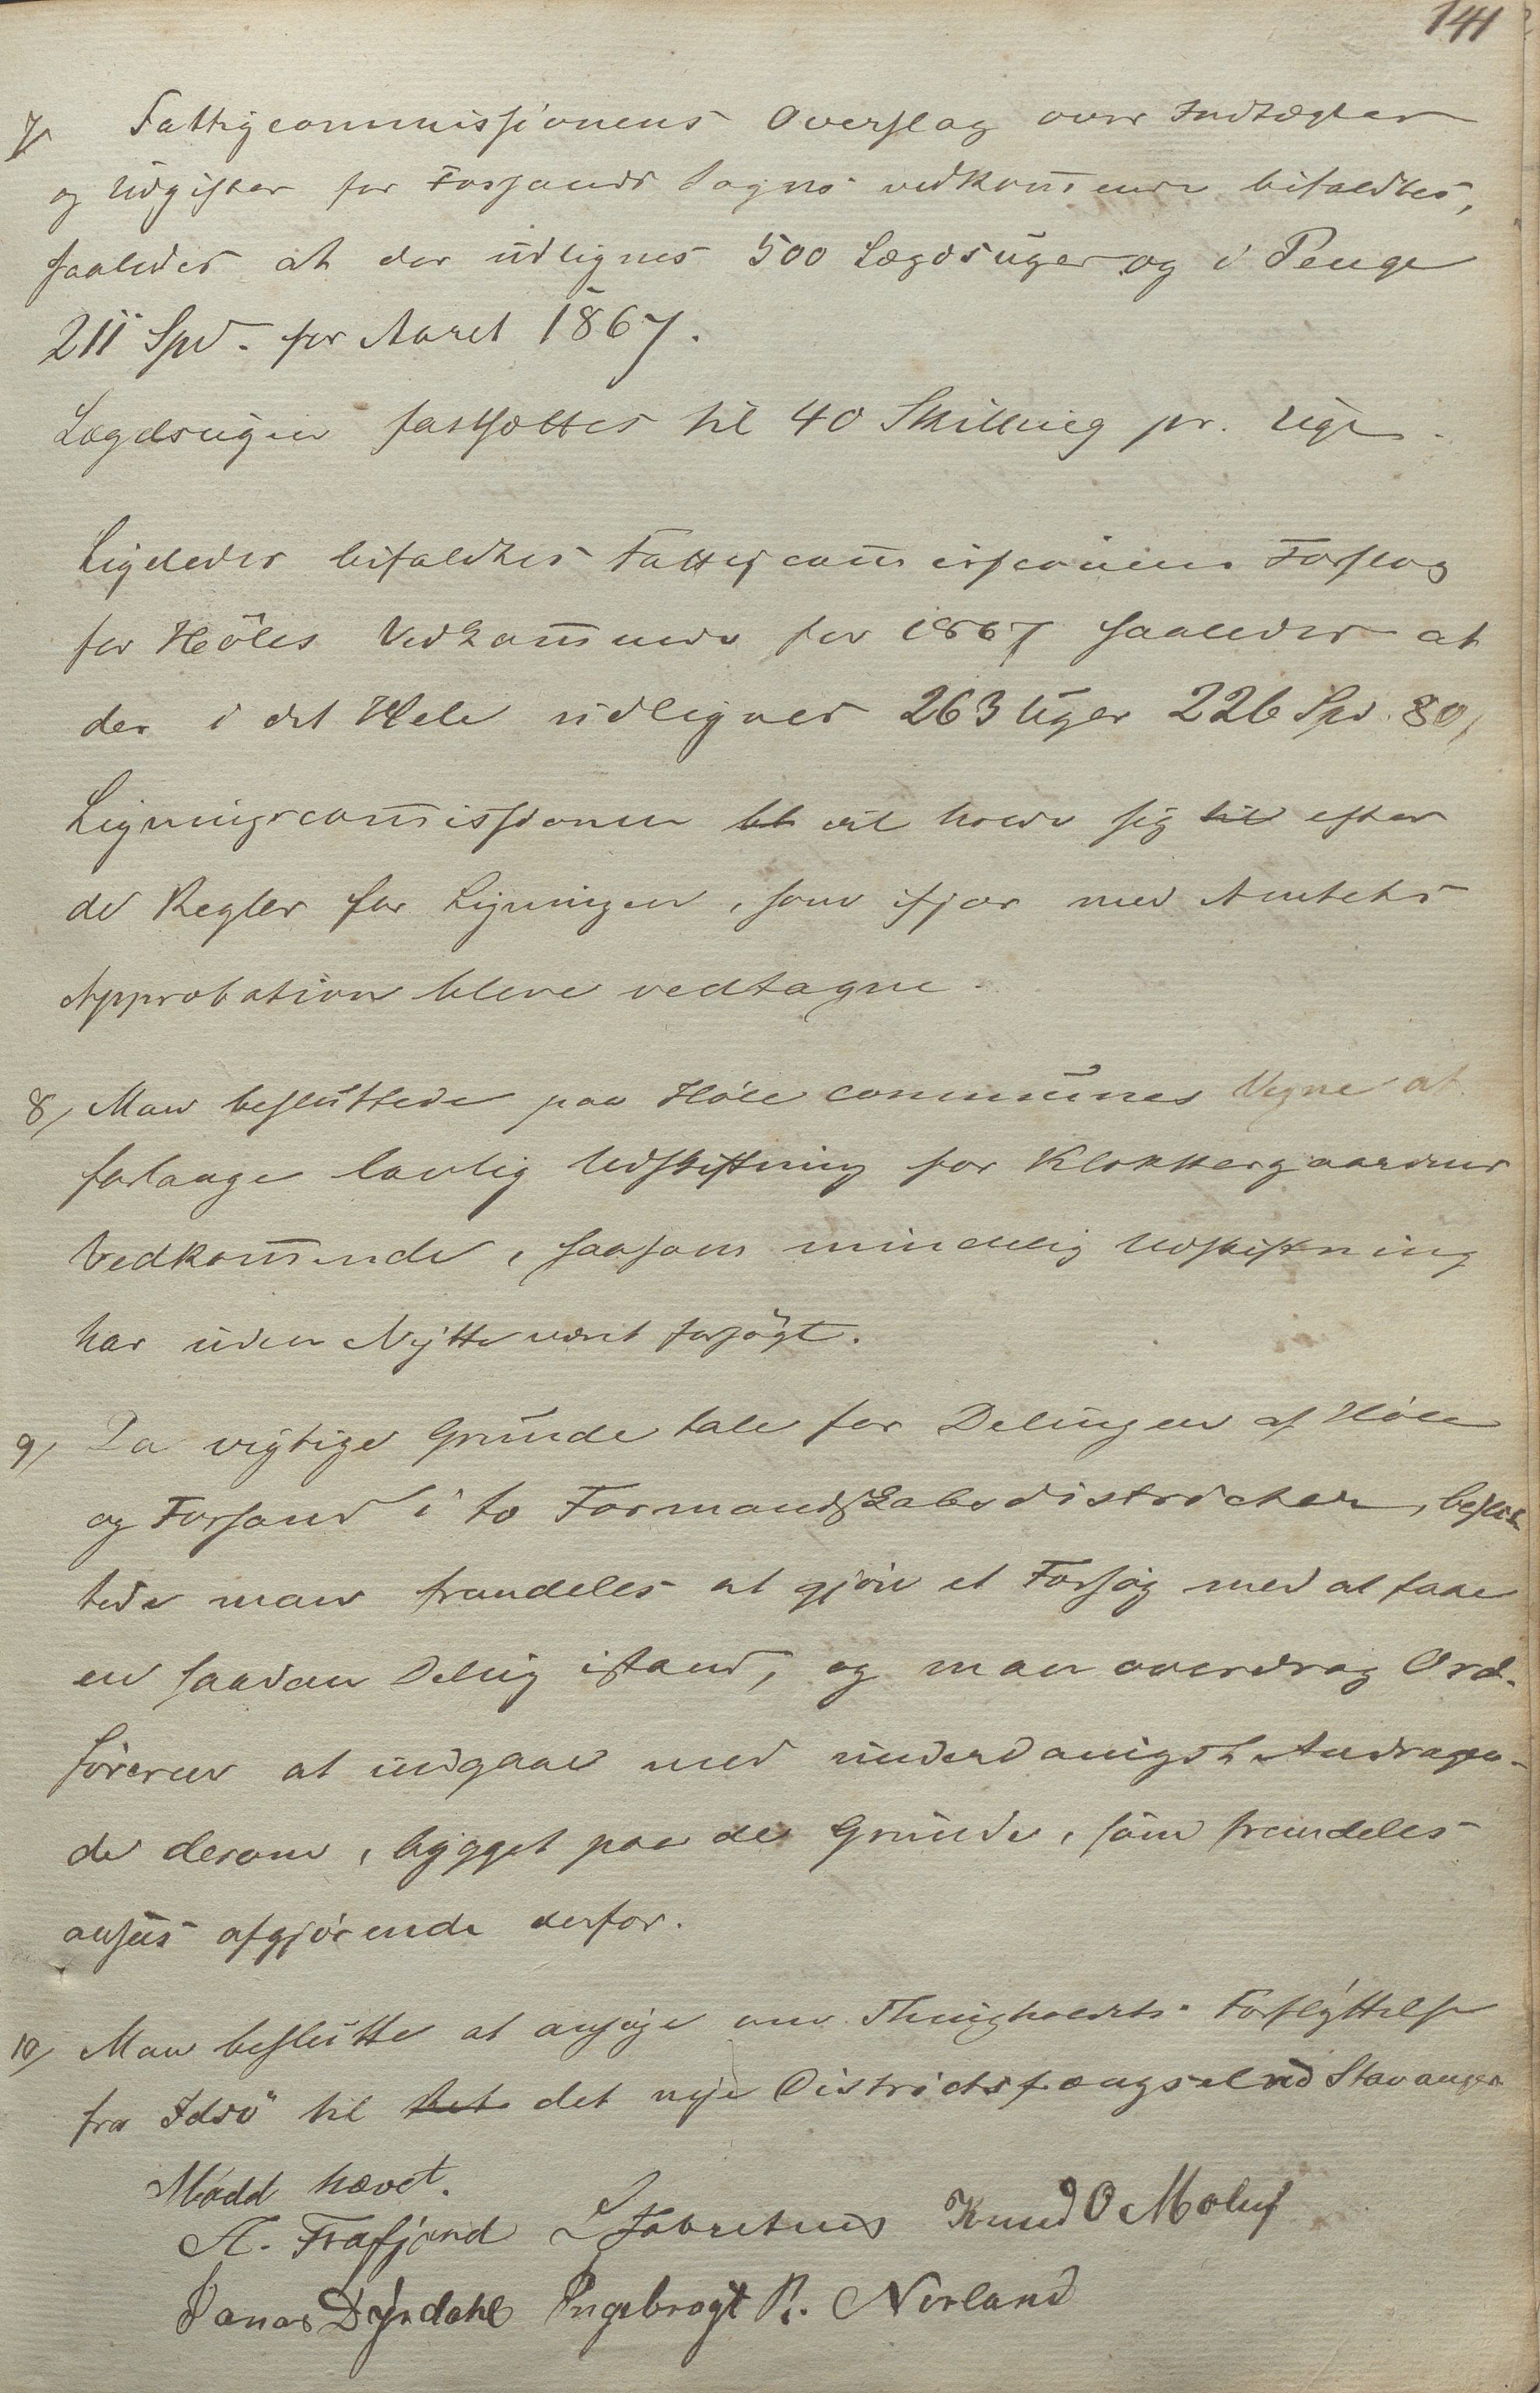 141
7, Fattigcommissionens Overslag over Indtægter
og Udgifter for Forsands Sogns vedkom̄ende bifaldtes,
saaledes at der udlignes 500 Lægdsuger og i Penge
211 Spd. for Aaret 1867.
Lægdsugen fastsættes til 40 Skilling pr. Uge.
Ligeledes bifaldtes Fattigcom̄issionens Forslag
for Höles Vedkom̄ende for 1867 saaledes at
der i det Hele udlignes 263 Uger 226 Spd. 80,
Ligningscom̄issionen vil holde sig efter
de Regler for Ligningen, som ifjor med Amtets
Approbation bleve vedtagne.
8, Man besluttede paa Höle Communes Vegne at
forlange lovlig Udskiftning for Klokkergaardens
Vedkom̄ende, saasom mindelig Udskiftning
har uden Nytte været forsögt.
9, Da vigtige Grunde tale for Delingen af Höle
og Forsand i to Formandskabsdistricter, beslut
tede man fremdeles at gjöre et Forsög med at faae
en saadan Deling istand, og man overdrog Ord-
föreren at indgaae med underdanigst Andragen-
de derom, bygget paa de Grunde, som fremdeles
ansees afgjörende derfor.
10, Man beslutte at ansöge om Thingstedets Forflyttelse
fra Idsö til det nye Districtsfængsel ved Stavanger
Mödet hævet.
A. Frafjord Fabritius Knud O Moluf
Jonas Dÿrdahl Ingebregt P. Norland